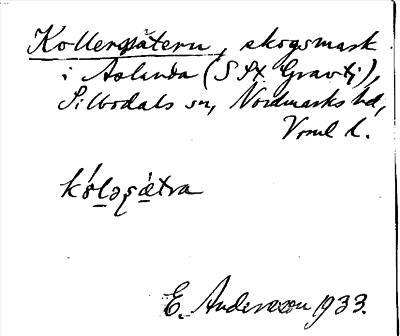 Kollersätern, skogsmark
i Aslanda (S fr. Gravtj),
Silbodals sn, Nordmarks hd,
Vrml l.
E. Andersson 1933.